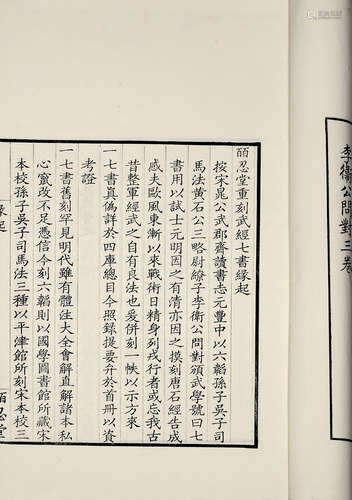 李衛公問對三卷
皕忍堂重刻武經七書緣起
按宋晁公武郡齋讀書志元豐中以六韜孫子吳子司
馬法黃石公三略尉繚子李衛公問對頒武學號曰七
書用以試士元明因之有清亦因之摸刻唐石經告成
感夫歐風東漸以來戰術日精身列戎行者或忘我古
昔整軍經武之自有良法也爰併刻一帙以示方來
一七書真偽詳於四庫總目今照錄提要弁於首冊以資
考證
一七書舊刻罕見明代雖有體注大全會解直解諸本私
心竄改不足憑信今刻六韜則以國學圖書館所藏宋
本校孫子吳子司馬法三種以平津館所刻宋本校三
緣起
皕忍堂